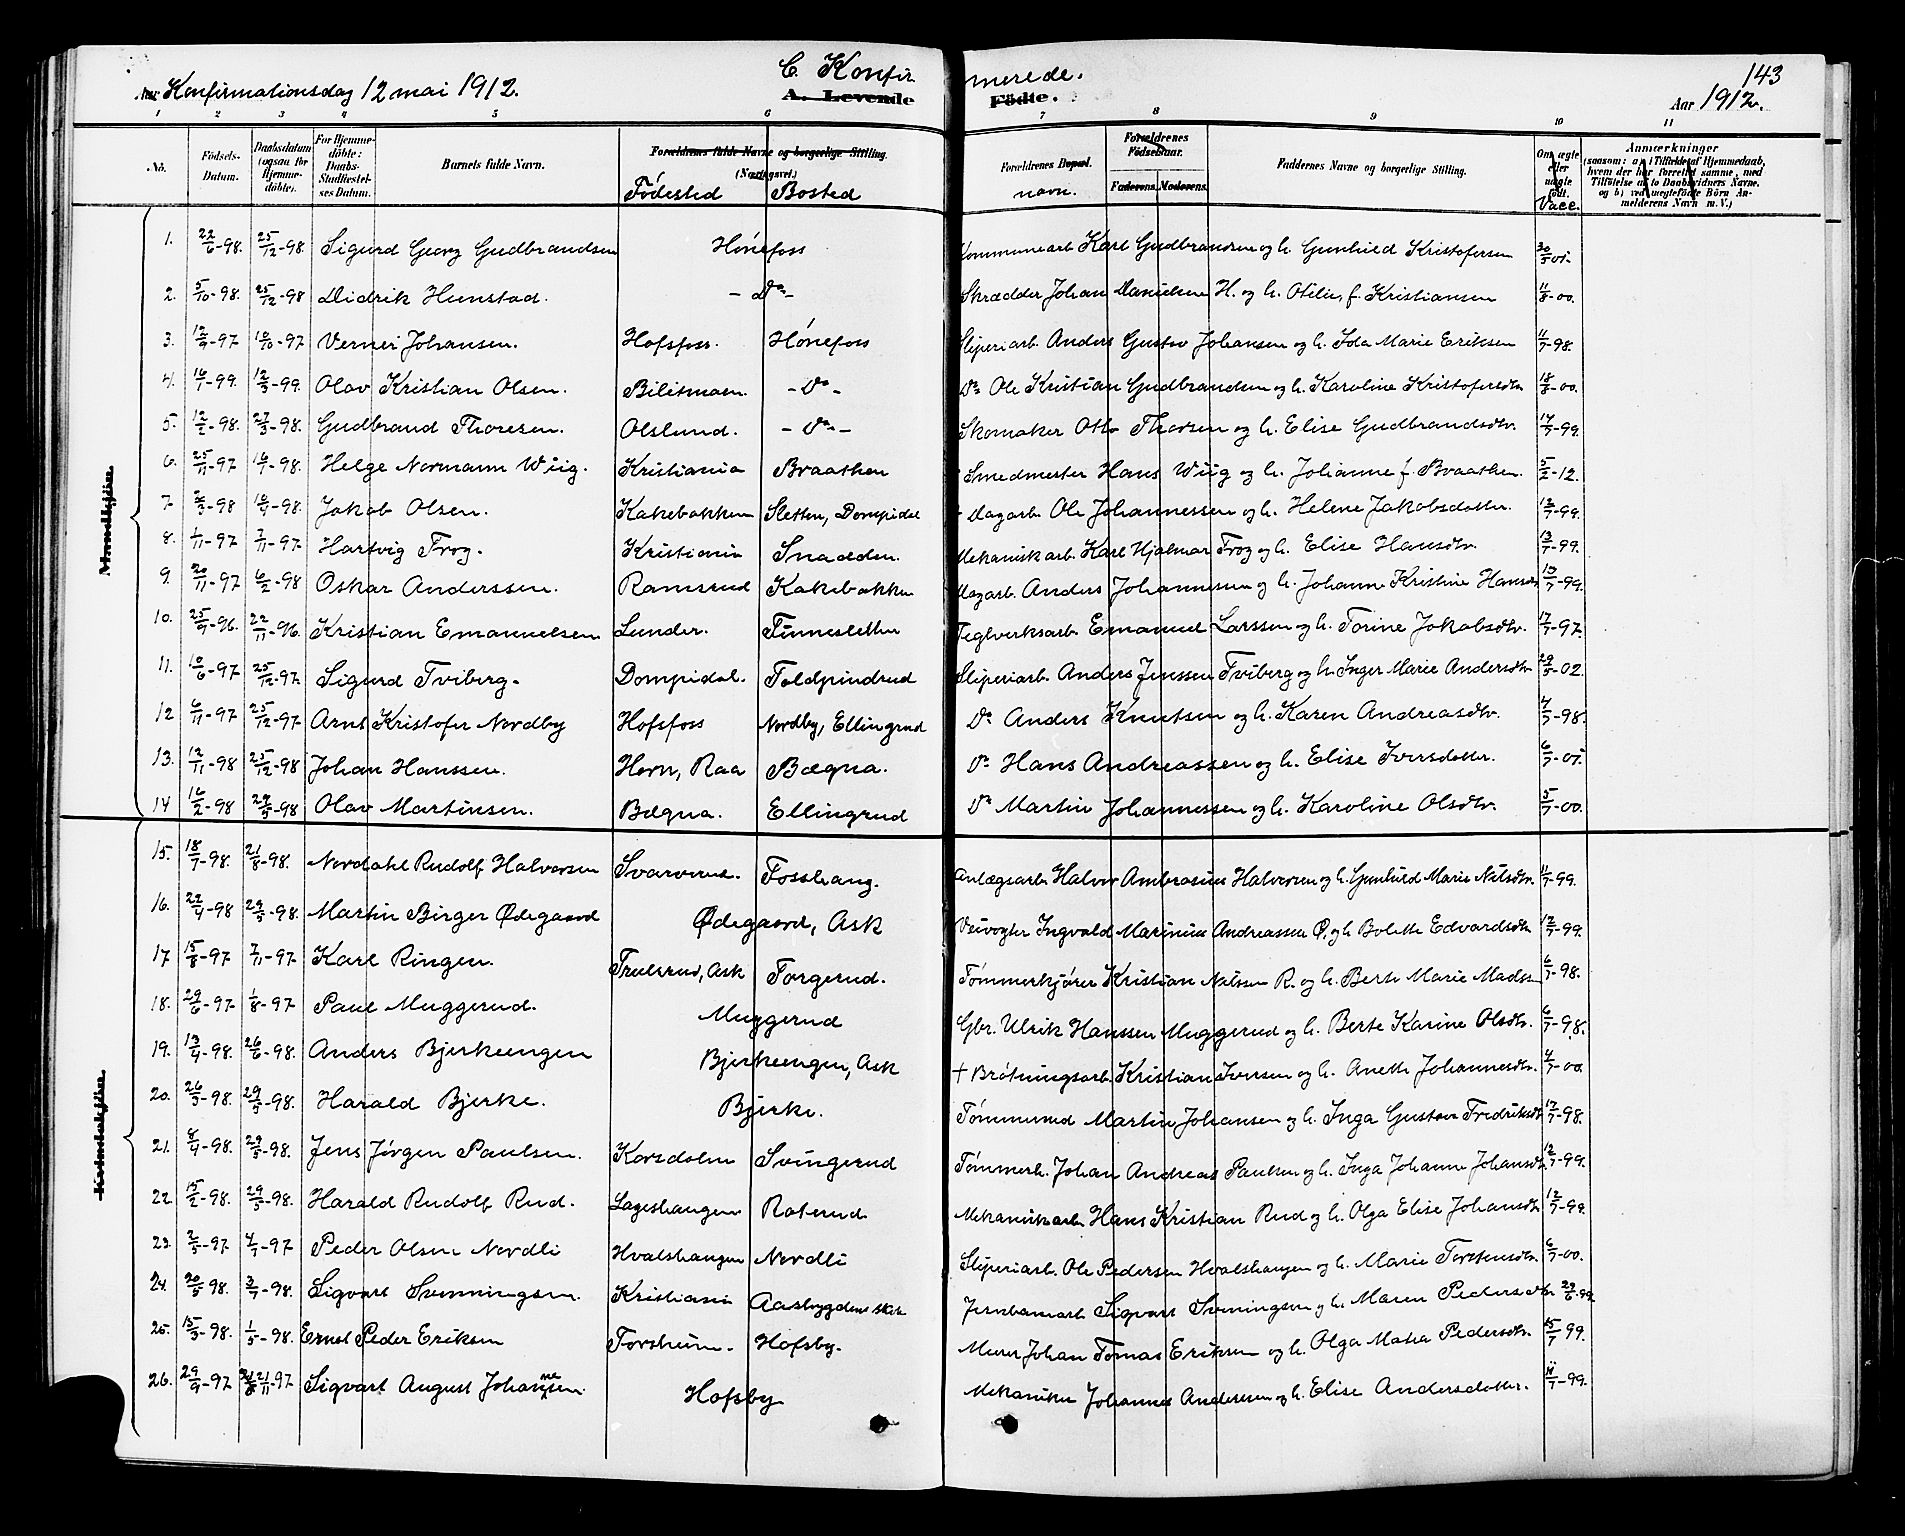 C. Konfirmerede.
143
Aar Konfirmationsdag 12 mai 1912.
A. Levende Fødte.
Aar 1912.
1 2 3 4 5 6 7 8 9 10 11
No. Fødsels-Datum. Daabsdatum (ogsaa for Hjemmedøbte). For Hjemmedøbte: Daabs Stadfæstelses Datum. Barnets fulde Navn. Forældrenes fulde Navne og borgerlige Stilling. (Næringsvei.) Fødested Bosted Forældrenes Bopæl. navn. Forældrenes Fødselsaar. Faderens. Moderens. Faddernes Navne og borgerlige Stilling. Om ægte eller uægte født. Vacc. Anmærkninger (saasom: a) i Tilfælde af Hjemmedaab, hvem der har forrettet samme, med Tilføielse af to Daabsvidners Navne, og b) ved uægtefødte Børn Anmelderens Navn m. V.)
Mandkjøn
1. 22/6-98. 25/12-98. Sigurd Georg Gudbrandsen Hønefoss Kommunearb. Karl Gudbrandsen og h. Gunhild Kristofersen
2. 5/10-98. 25/12-98 Didrik Hunstad. - Do - Skrædder Johan Danielsen H. og h. Otilie, f. Kristiansen 11/8-00.
3. 12/9-97 10/10-97 Verner Johansen. Hofsfoss. Hønefoss Sliperiarb. Anders Gustav Johansen og h. Ida Marie Eriksen 11/7-98.
4. 16/7-99. 12/3-99. Olav Kristian Olsen. Bilitmoen. - Do - Do Ole Kristian Gudbrandsen og h. Karoline Kristofersdtr. 18/8-00.
5. 12/2-98. 27/3-98. Gudbrand Thoresen. Olslund. - Do - Skomaker Otto Thoresen og h. Elise Gudbrandsdtr. 14/7-99.
6. 25/11-97 16/1-98. Helge Normann Wiig. Kristiania Braathen Smedmester Hans Wiig og h. Johanne f. Braathen. 5/2-12.
7. 2/3-98 10/4-98. Jakob Olsen. Kakebakken Sletten, Dompidal Dagarb. Ole Johannessen og h. Helene Jakobsdatter. 12/7-99.
8. 1/11-97 7/11-97. Hartvig Frog. Kristiania Snadden. Mekanisk arb. Karl Hjalmar Frog og h. Elise Hansdtr. 13/7-99.
9. 20/11-97 6/2-98 Oskar Anderssen. Ramsrud Kakebakken Dagarb. Anders Johannessen og h. Johanne Kristine Hansdtr. 13/7-99.
10. 25/9-96. 22/11-96. Kristian Emanuelsen Lunder. Finnesletten Teglverksarb. Emanuel Larssen og h. Torine Jakobsdtr. 17/7-97.
11. 10/6-97 25/12-97. Sigurd Tviberg. Dompidal. Foldpindrud Sliperiarb. Anders Jenssen Tviberg og h. Inger Marie Andersdtr. 29/5-02.
12 6/11-97 25/12-97 Arnt Kristofer Nordby Hofsfoss Nordby, Ellingrud Do Anders Knutsen og h. Karen Andreasdtr. 4/7-98.
13. 12/11-98 25/12-98 Johan Hanssen. Horn, Raa Bægna. Do Hans Andreassen og h. Elise Iversdatter.
14 16/2-98 29/5-98 Olav Martinsen. Bægna. Ellingrud Do Martin Johannessen og h. Karoline Olsdtr. 5/7-00.
Kvindekjøn
15. 18/7-98. 21/8-98. Nordahl Rudolf Halvorsen Svarverud. Fosshaug. Anlægsarb. Halvor Ambrosius Halvorsen og h. Gunhild Marie Nilsdtr. 11/7-99.
16. 22/4-98 29/5-98. Martin Birger Ødegaard Ødegaard, Ask Veivogter Ingvald Marinius Andreassen Ø. og h Bolette Edvardsdtr. 12/7-99.
17 15/8-97 7/11-97. Karl Ringen. Trulsrud, Ask Torgerud. Tømmerkjører Kristian Nilssen R. og h. Berte Marie Madsen 6/7-98.
18. 29/6-97 1/8-97. Paul Muggerud. Muggerud Gbr. Ulrik Hanssen Muggerud og h. Berte Karine Olsdtr. 6/7-98.
19. 13/4-98. 26/6-98. Anders Bjerkeengen Bjerkeengen, Ask + Brøtningsarb. Kristian Iversen og h. Anette Johannesdtr. 4/7-00.
20. 26/3-98. 29/5-98. Harald Bjerke. Bjerke. Martin Johansen og h. Inga Gustava Fredriksdtr. 12/7-98.
21. 8/4-98. 29/5-98. Jens Jørgen Paulsen. Korsdalen Svingerud Tømmerh. Johan Andreas Paulsen og h. Inga Johanne Johansdtr. 12/7-99.
22. 15/2-98. 29/5-98. Harald Rudolf Rud. Lageshaugen Roterud Mekanisk arb. Hans Kristian Rud og h. Olga Elise Johansdtr 12/7-99.
23. 2/5-97. 4/7-97 Peder Olsen Nordli Hvalshaugen Nordli Sliperiarb. Ole Pedersen Hvalshaugen og h. Marie Torstensdtr. 6/7-00.
24. 20/5-98. 3/7-98. Sigvart Svenningsen. Kristiania Aasbygdens skole Jernbanearb Sigvart Svenningsen og h. Maren Pedersdtr 22/6-99.
25. 15/3-98. 1/5-98. Ernst Peder Eriksen Forsheim. Hofsby. Murer Johan Tomas Eriksen og h. Olga Matea Pedersdtr. 15/7 99.
26. 29/9-97 21/11-97. Sigvart August Johannesen. Hofsby Mekaniker Johannes Andersen og h. Elise Andersdatter. 11/7-99.